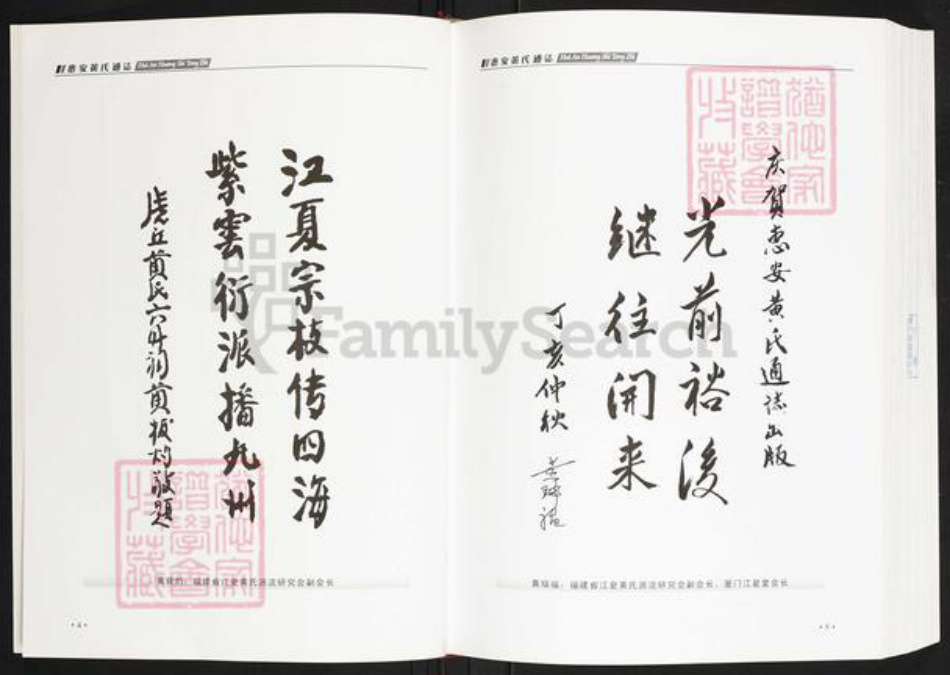 惠安黄氏通志 Hui An Huang Shi Tong Zhi
江夏宗枝传四海
紫雲衍派播九州
虎丘黄氏六斗祠黄拔灼敬题
黄拔灼：福建省江夏黄氏源流研究会副会长
·4·
惠安黄氏通志 Hui An Huang Shi Tong Zhi
庆贺惠安黄氏通志出版
光前裕後
继往開来
丁亥仲秋
福建省江夏黄氏源流研究会副会长、厦门江夏堂会长
·5·
猶他家譜學會收藏
猶他家譜學會收藏
FamilySearch